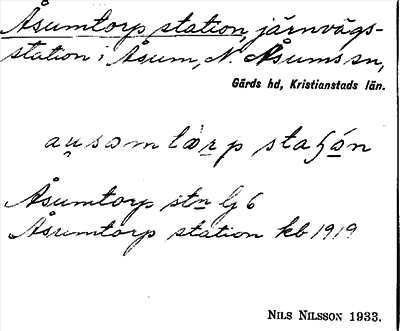 Åsumtorp station, järnvägs-
station i Åsum, N. Åsums sn,
Gärds hd, Kristianstads län.
Åsumtorp stn lj 6
Åsumtorp station kb 1919
NILS NILSSON 1933.